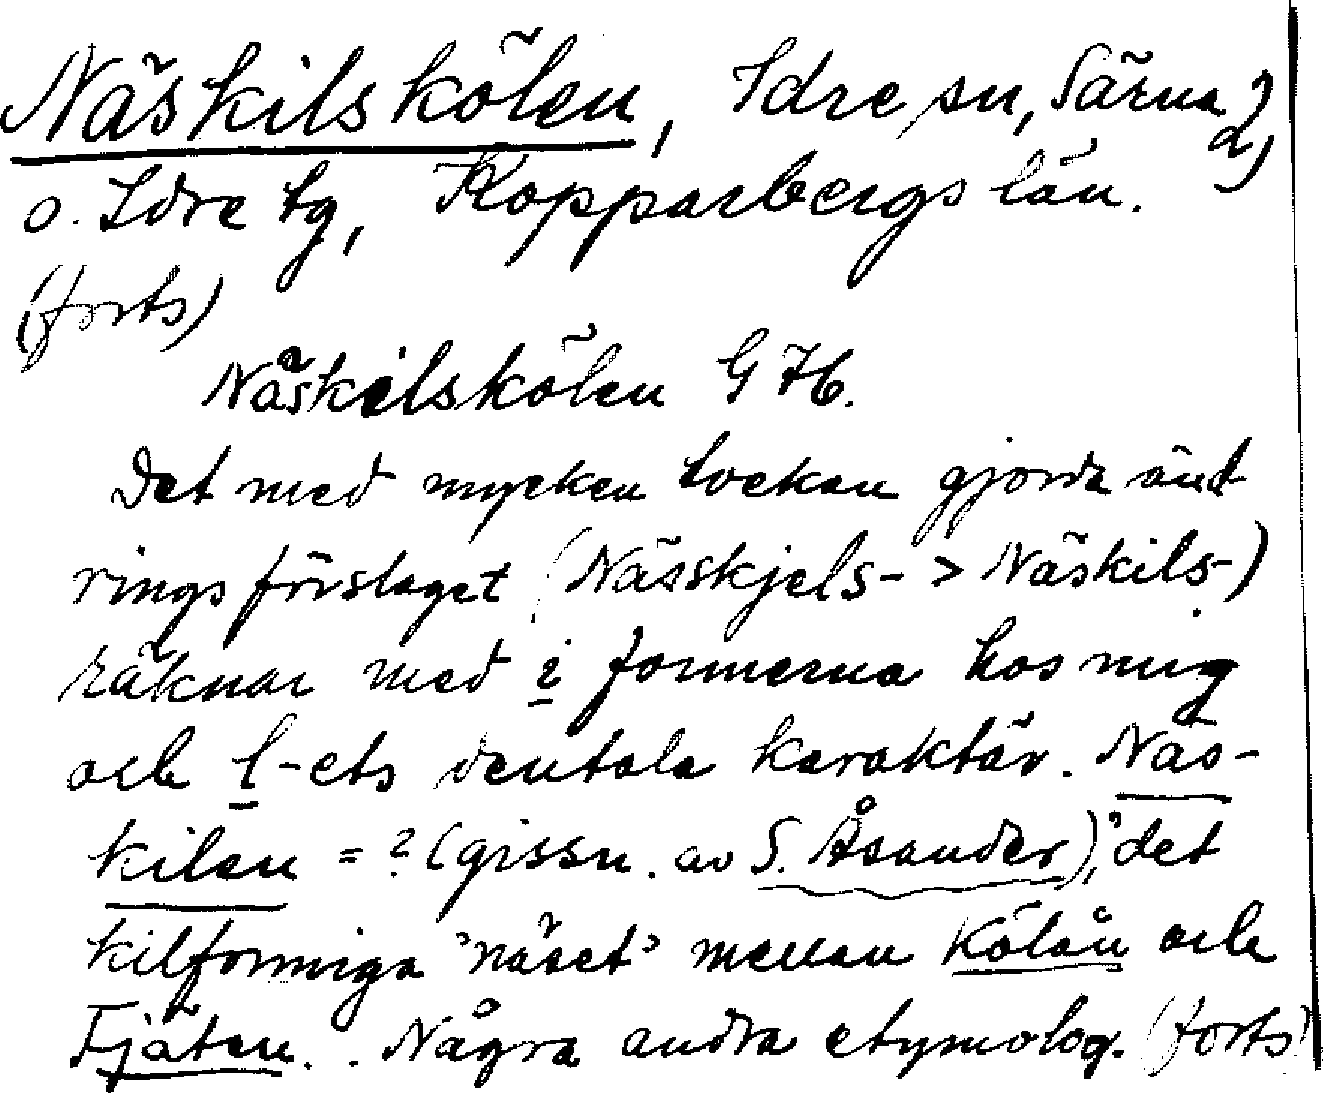 Näskilskölen, Idre sn, Särna 2)
o. Idre tg, Kopparbergs län.
(forts)
Näskilskölen G 76.
Det med mycken tvekan gjorda änd-
ringsförslaget (Nässkjels- > Näskils-)
räknar med i formerna hos mig
och l-ets dentala karaktär. Näs-
kilen = ? (gissn. av S. Åsander), 'det
kilformiga 'näset' mellan Kölån och
Fjäten. . Några andra etymolog. (forts)